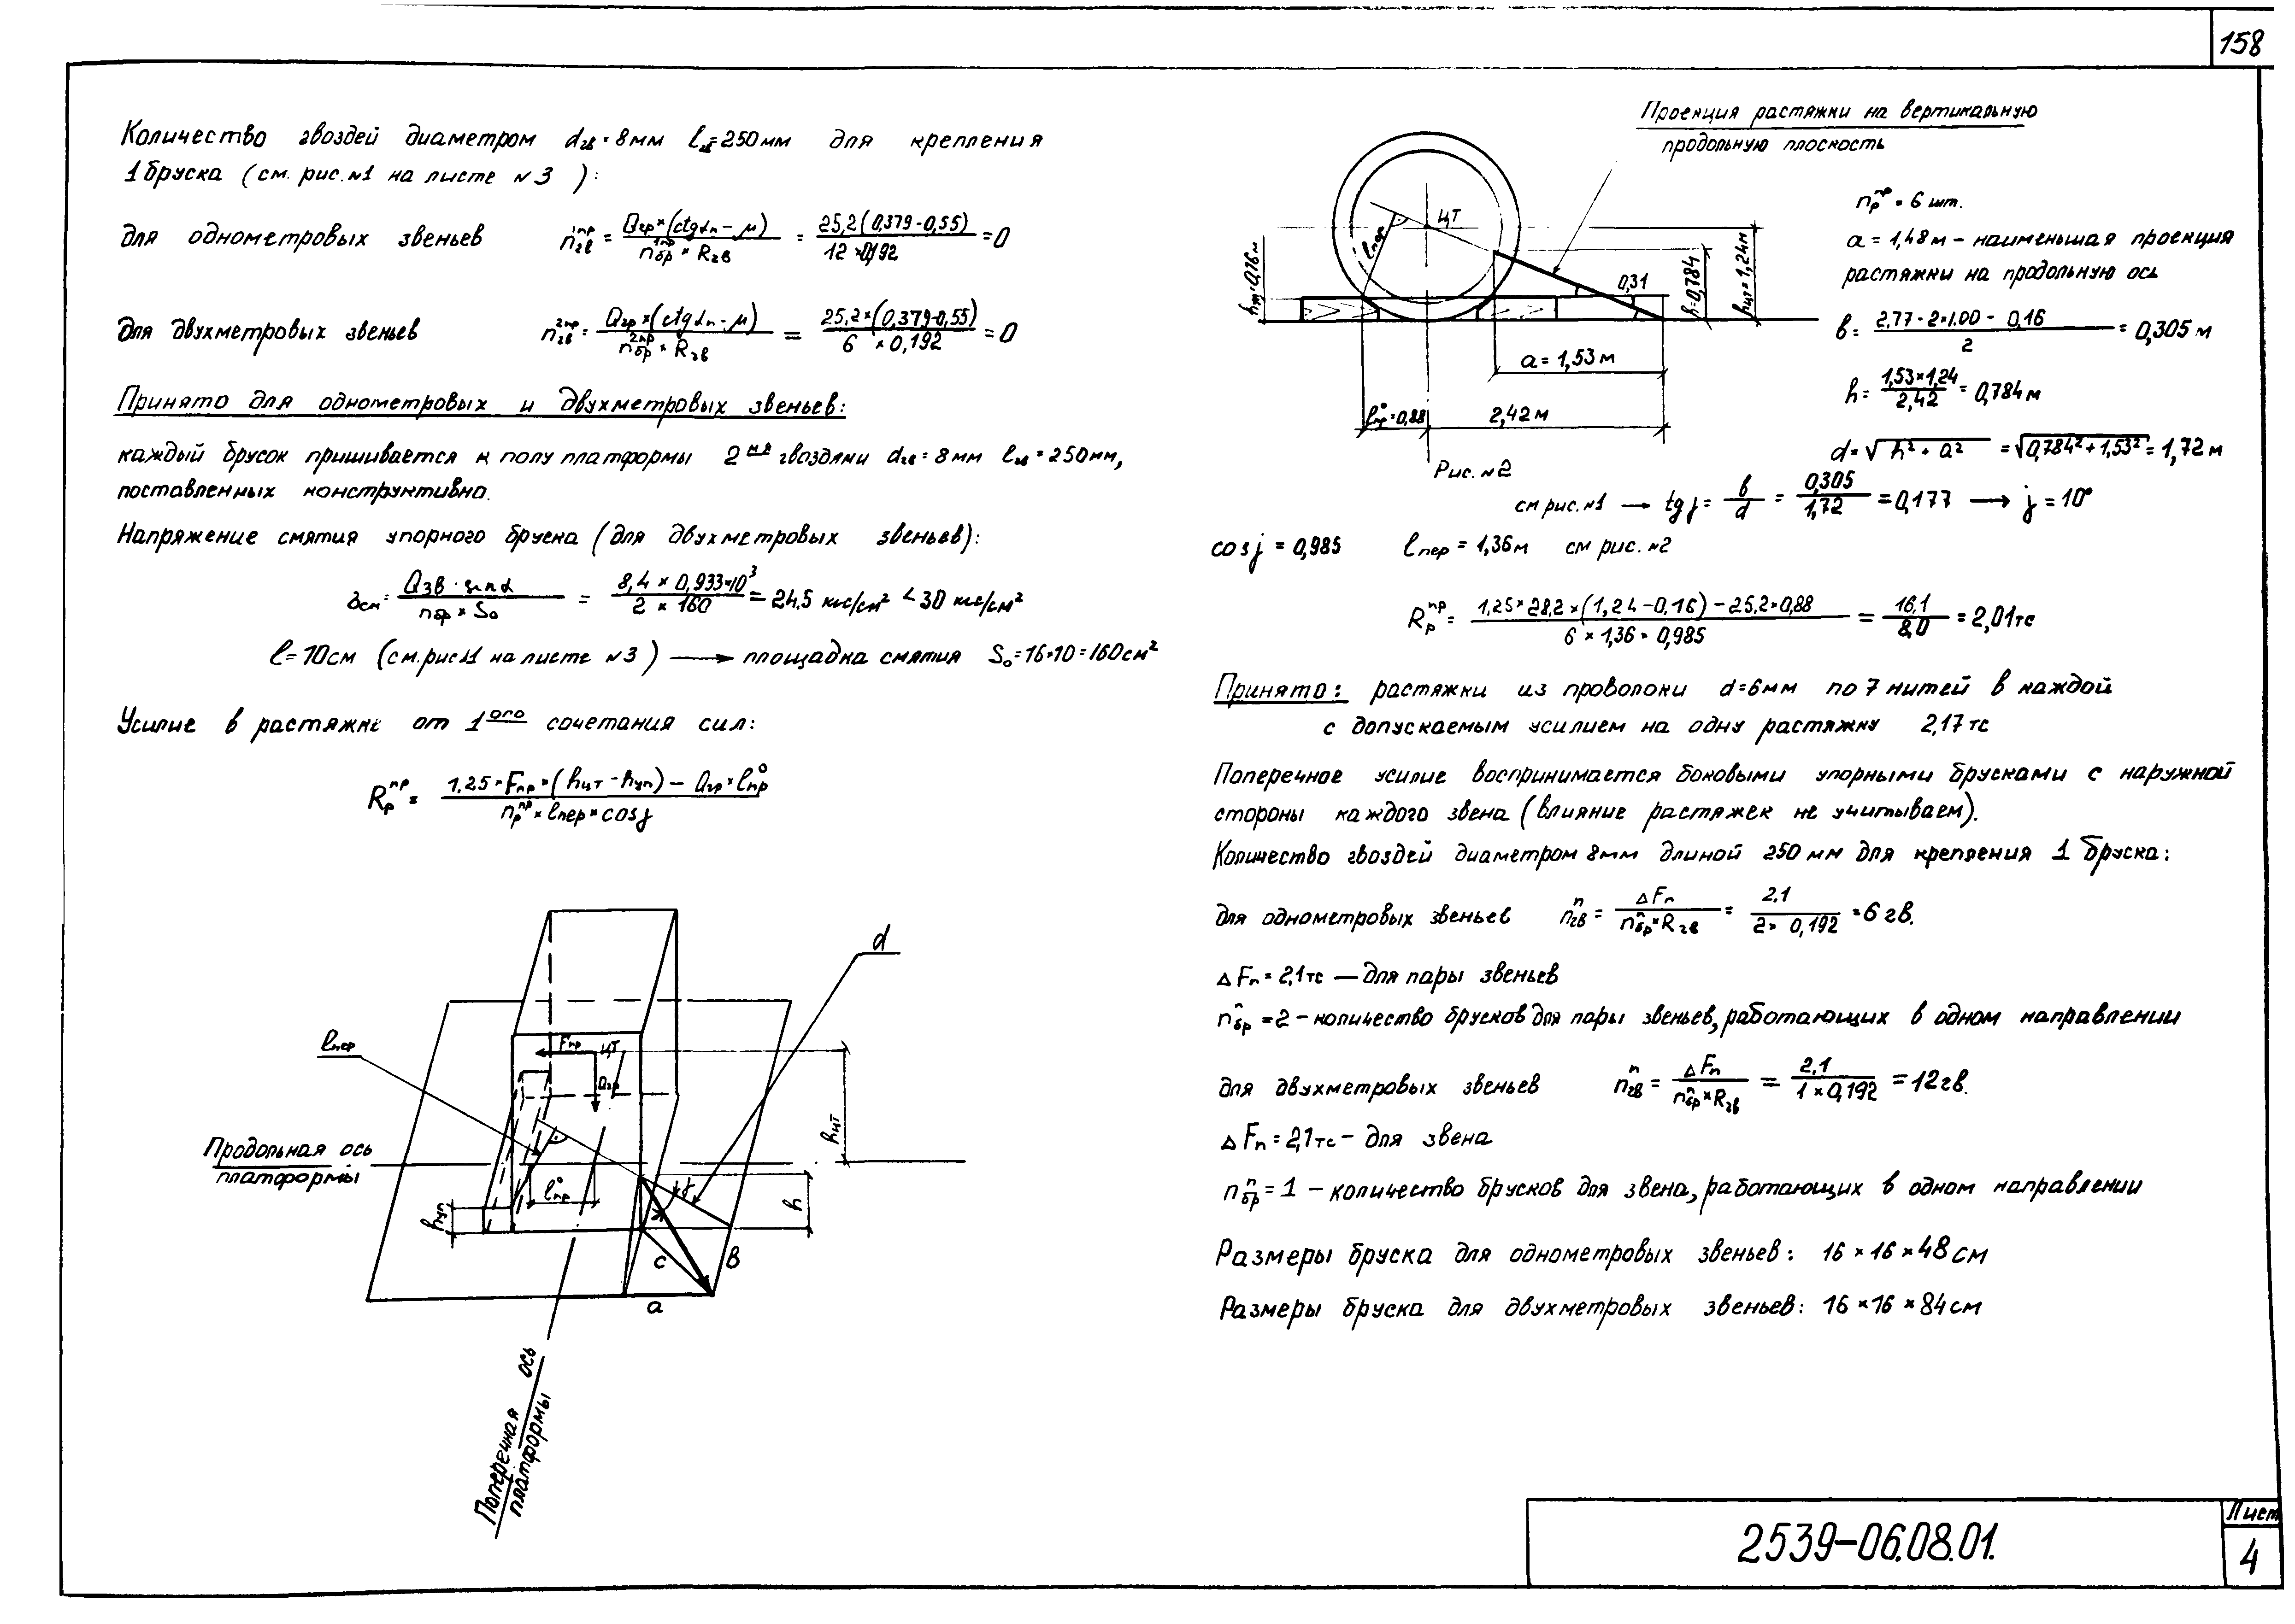 158
Количество гвоздей диаметром dгв = 8мм lгв = 250мм для крепления
1 бруска (см. рис. №1 на листе №3 ):
для однометровых звеньев nгв¹ᵖʳ = Qгр × (ctg αп − μ) / nбр¹ᵖʳ × Rгв = 25,2 (0,379 - 0,55) / 12 × 0,192 = 0
для двухметровых звеньев nгв²ᵖʳ = Qгр × (ctg αп − μ) / nбр²ᵖʳ × Rгв = 25,2 × (0,379 - 0,55) / 6 × 0,192 = 0
Принято для однометровых и двухметровых звеньев:
каждый брусок пришивается к полу платформы 2мя гвоздями dгв = 8мм lгв = 250мм,
поставленных конструктивно.
Напряжение смятия упорного бруска (для двухметровых звеньев):
σсм = Qзв · sin α / nбр × S₀ = 8,4 × 0,933 × 10³ / 2 × 160 = 24,5 кгс/см² < 30 кгс/см²
l = 10см (см. рис №1 на листе №3 ) → площадка смятия S₀ = 16 × 10 = 160см²
Усилие в растяжке от 1ого сочетания сил:
Rрпр = 1,25 × Fпр × (hцт − hуп) − Qгр × l°пр / nрпр × lпер × cos γ
d
lпер
Fпр
ЦТ
Qгр
hцт
Продольная ось
платформы
l°пр
hуп
γ
h
c
в
a
Поперечная ось
платформы
Проекция растяжки на вертикальную
продольную плоскость
ЦТ
lпер
hуп = 0,16м
0,31
h = 0,784
hцт = 1,24м
a = 1,53м
l°пр = 0,88
2,42м
Рис. №2
nрпр = 6 шт.
a = 1,48м – наименьшая проекция
растяжки на продольную ось
в = 2,77 - 2 × 1.00 - 0,16 / 2 = 0,305 м
h = 1,53 × 1,24 / 2,42 = 0,784м
d = √h² + a² = √0,784² + 1,53² = 1,72 м
см рис. №1 → tg γ = в / d = 0,305 / 1,72 = 0,177 → γ = 10°
cos γ = 0,985 lпер = 1,36м см рис. №2
Rрпр = 1,25 × 28,2 × (1,24 - 0,16) - 25,2 × 0,88 / 6 × 1,36 × 0,985 = 16,1 / 8,0 = 2,01тс
Принято: растяжки из проволоки d = 6мм по 7 нитей в каждой
с допускаемым усилием на одну растяжку 2,17 тс
Поперечное усилие воспринимается боковыми упорными брусками с наружной
стороны каждого звена (влияние растяжек не учитываем).
Количество гвоздей диаметром 8мм длиной 250 мм для крепления 1 бруска:
для однометровых звеньев nгвп = ΔFп / nбрп × Rгв = 2.1 / 2 × 0,192 = 6 гв.
ΔFп = 2,1тс — для пары звеньев
nбрп = 2 – количество брусков для пары звеньев, работающих в одном направлении
для двухметровых звеньев nгвп = ΔFп / nбрп × Rгв = 2.1 / 1 × 0,192 = 12 гв.
ΔFп = 2,1тс – для звена
nбрп = 1 – количество брусков для звена, работающих в одном направлении
Размеры бруска для однометровых звеньев: 16 × 16 × 48 см
Размеры бруска для двухметровых звеньев: 16 × 16 × 84 см
2539-06.08.01.
Лист
4